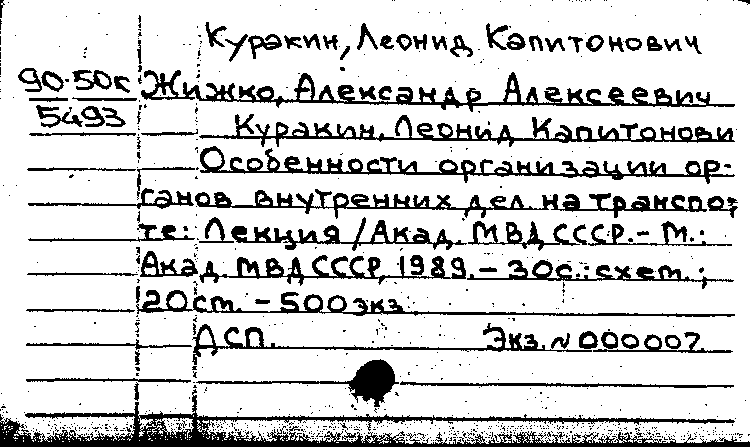 Куракин, Леонид Капитонович
90-50к Жижко, Александр Алексеевич
5493 Куракин, Леонид Капитонови
Особенности организации ор-
ганов внутренних дел на транспор
те: Лекция / Акад. МВД СССР. - М.:
Акад. МВД СССР, 1989. - 30с.: схем.;
20 ст. - 500 экз.
ДСП. Экз. N 000007